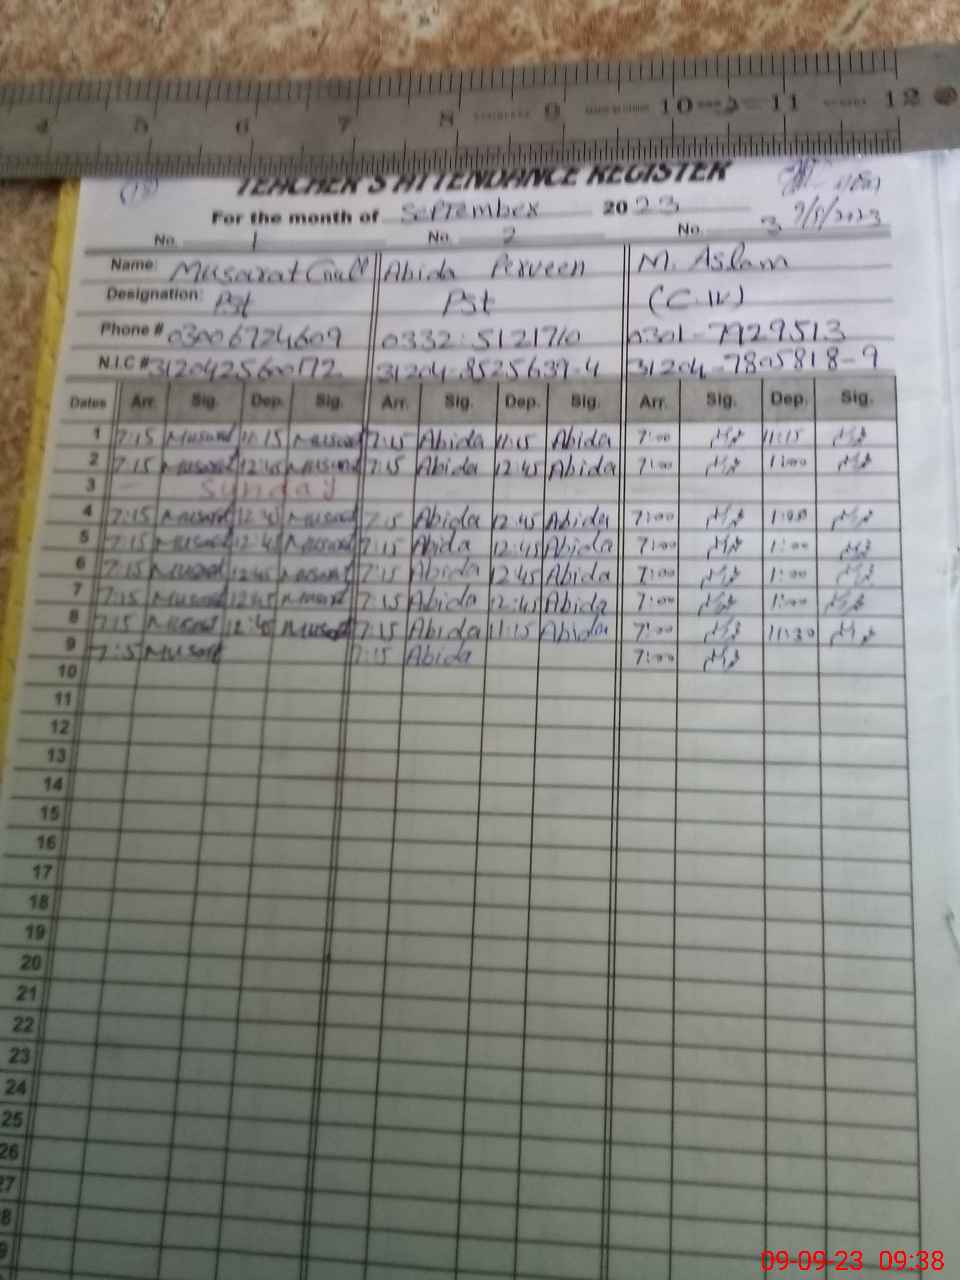 4 5 6 7 8 9 10 11 12
TEACHER'S ATTENDANCE REGISTER
For the month of September 2023
9/9/2023
No. 1 No. 2 No. 3
Name: Musarat Gull Abida Perveen M. Aslam
Designation: Pst Pst (C.IV)
Phone # 03006724609 0332-5121710 0301-7929513
N.I.C # 31204-8525639-4 31204-7805818-9
Dates Arr. Sig. Dep. Sig. Arr. Sig. Dep. Sig. Arr. Sig. Dep. Sig.
1 7:15 Musarat 11:15 Musarat 7:15 Abida 11:15 Abida 7:00 11:15
2 7:15 Musarat 12:45 Musarat 7:15 Abida 12:45 Abida 7:00 1:00
3 Sunday
4 7:15 Musarat 12:45 Musarat 7:15 Abida 12:45 Abida 7:00 1:00
5 7:15 Musarat 12:45 Musarat 7:15 Abida 12:45 Abida 7:00 1:00
6 7:15 Musarat 12:45 Musarat 7:15 Abida 12:45 Abida 7:00 1:00
7 7:15 Musarat 12:45 Musarat 7:15 Abida 12:45 Abida 7:00 1:00
8 7:15 Musarat 12:45 Musarat 7:15 Abida 11:15 Abida 7:00 11:30
9 7:15 Musarat 7:15 Abida 7:00
10
11
12
13
14
15
16
17
18
19
20
21
22
23
24
25
26
27
8
9
09-09-23 09:38